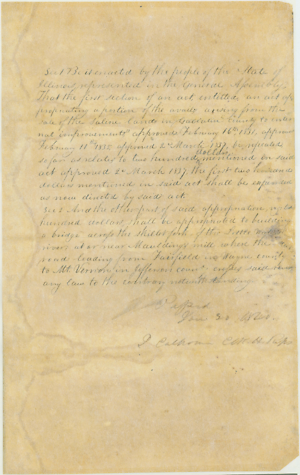 Sec 1 Be it enacted by the people of the State of
Illinois represented in the General Assembly
That the first section of an act entitled an act ap
propriating a portion of the monies arising from the
sale of the Saline Lands in Gallatin County to inter
nal improvements approved February 16th 1831, approved
February 1835 approved 2d March 1837, be repealed
so far as relates to two hundred dollars mentioned in said
act approved 2d March 1837. The first two hundred
dollars mentioned in said act shall be expended
as now directed by said act.
Sec 2 And the other part of said appropriation
hundred dollars shall be appropriated to building
a bridge across the Skillet fork of the Little Wabash
river, at or near Mauldings mill, where the
road leading from Fairfield in Wayne county
to Mt Vernon in Jefferson county crosses said
any law to the contrary notwithstanding
Passed
Jan 30 1840
J. Calhoun Clk H. Reps